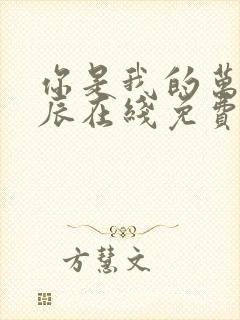 你是我的萬
辰在綫免費
方慧文